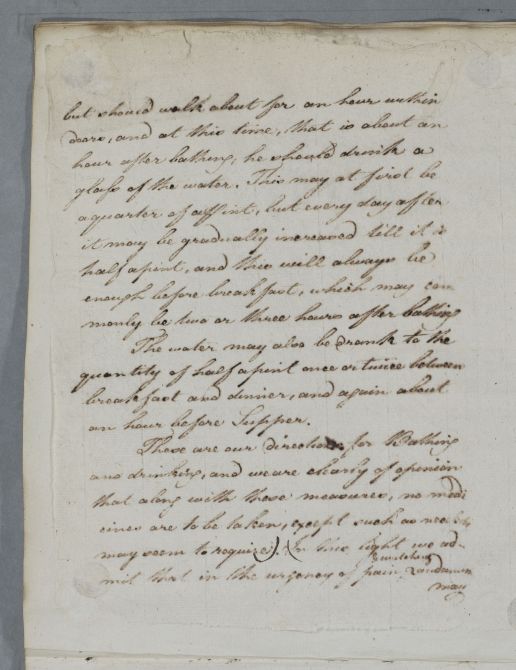 but should walk about for an hour within
doors, and at this time, that is about an
hour after bathing, he should drink a
glass of the water. This may at first be
a quarter of a pint, but every day after
it may be gradually increased till it is
half a pint, and this will always be
enough before breakfast, which may com
monly be two or three hours after bathing
The water may also be drank to the
quantity of half a pint once or twice between
breakfast and dinner, and again about
an hour before Supper.
These are our directions for Bathing
and drinking, and we are clearly of openion
that along with these measures, no medi
cines are to be taken, except such as
may seem to require). (In this light we ad-
mit that in the urgency of pain Laudanum
may